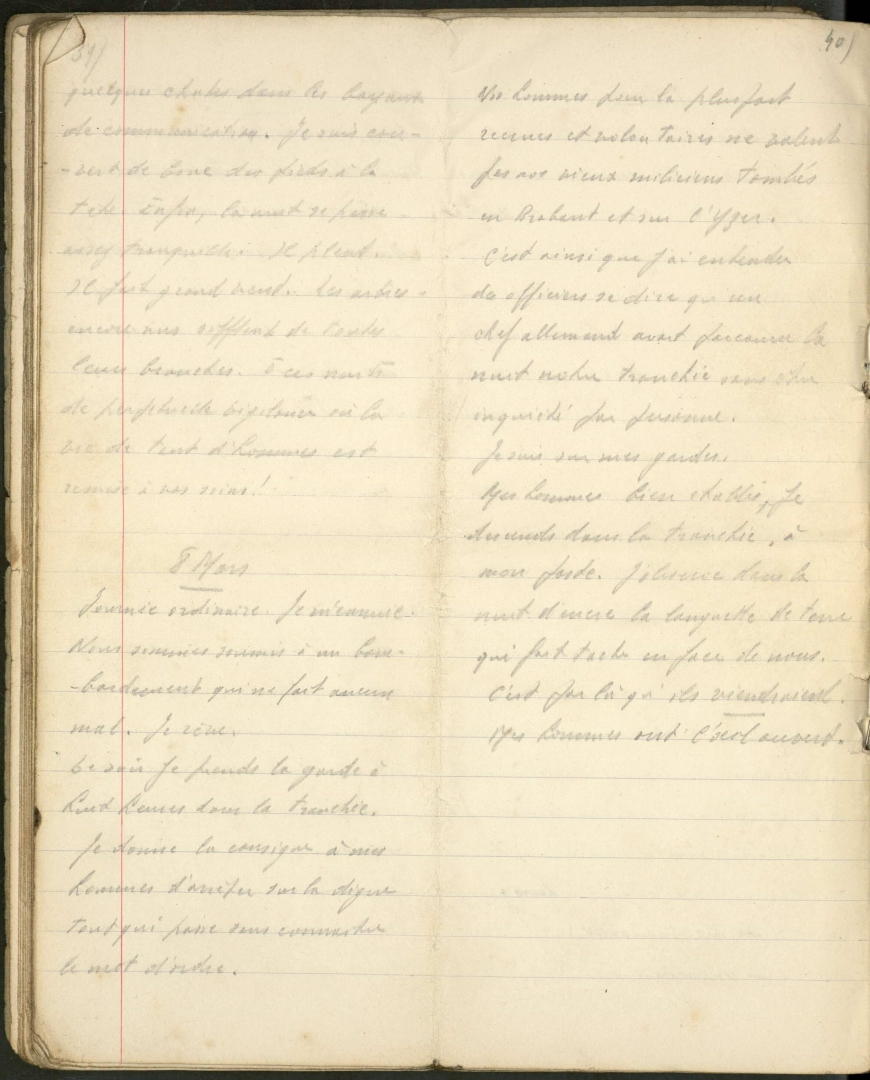 39)
quelques chutes dans les boyaux
de communication. Je suis cou-
-vert de boue des pieds à la
tête. Enfin, la nuit se passe
assez tranquille. Il pleut.
Il fait grand vent. Les arbres
encore nus sifflent de toutes
leurs branches. O ces nuits
de perpétuelle vigilance où la
vie de tant d'hommes est
remise à vos soins!
8 Mars
Journée ordinaire. Je m'ennuie.
Nous sommes soumis à un bom-
-bardement qui ne fait aucun
mal. Je rêve.
Le soir je prends la garde à
huit heures dans la tranchée.
Je donne la consigne à mes
hommes d'arrêter sur la digue
tout qui passe sans connaitre
le mot d'ordre.
40)
hommes pour la plus part
recrues et volontaires ne valent
pas nos vieux miliciens tombés
en Brabant et sur l'Yser.
C'est ainsi que j'ai entendu
des officiers se dire qu'un
chef allemand avait parcouru la
nuit notre tranchée sans être
inquiété par personne.
Je suis sur mes gardes.
Mes hommes bien établis, je
descends dans la tranchée, à
mon poste. J'observe dans la
nuit d'encre la languette de terre
qui fait tache en face de nous.
C'est par là qu'ils viendraient.
Mes hommes ont l'œil ouvert.